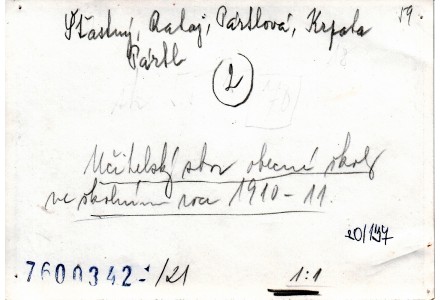 Šťastný, Rataj, Pártlová, Krpata
19.
Pártl
2
Učitelský sbor obecné školy
ve školním roce 1910-11.
20/197
7600342-/21
1:1